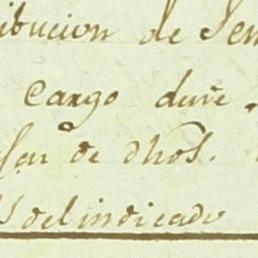 ibucion de Sem
Cargo deve
de dhos.
del indicado